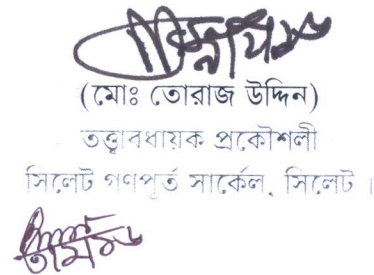 (মোঃ তোরাজ উদ্দিন)
তত্ত্বাবধায়ক প্রকৌশলী
সিলেট গণপূর্ত সার্কেল, সিলেট ।